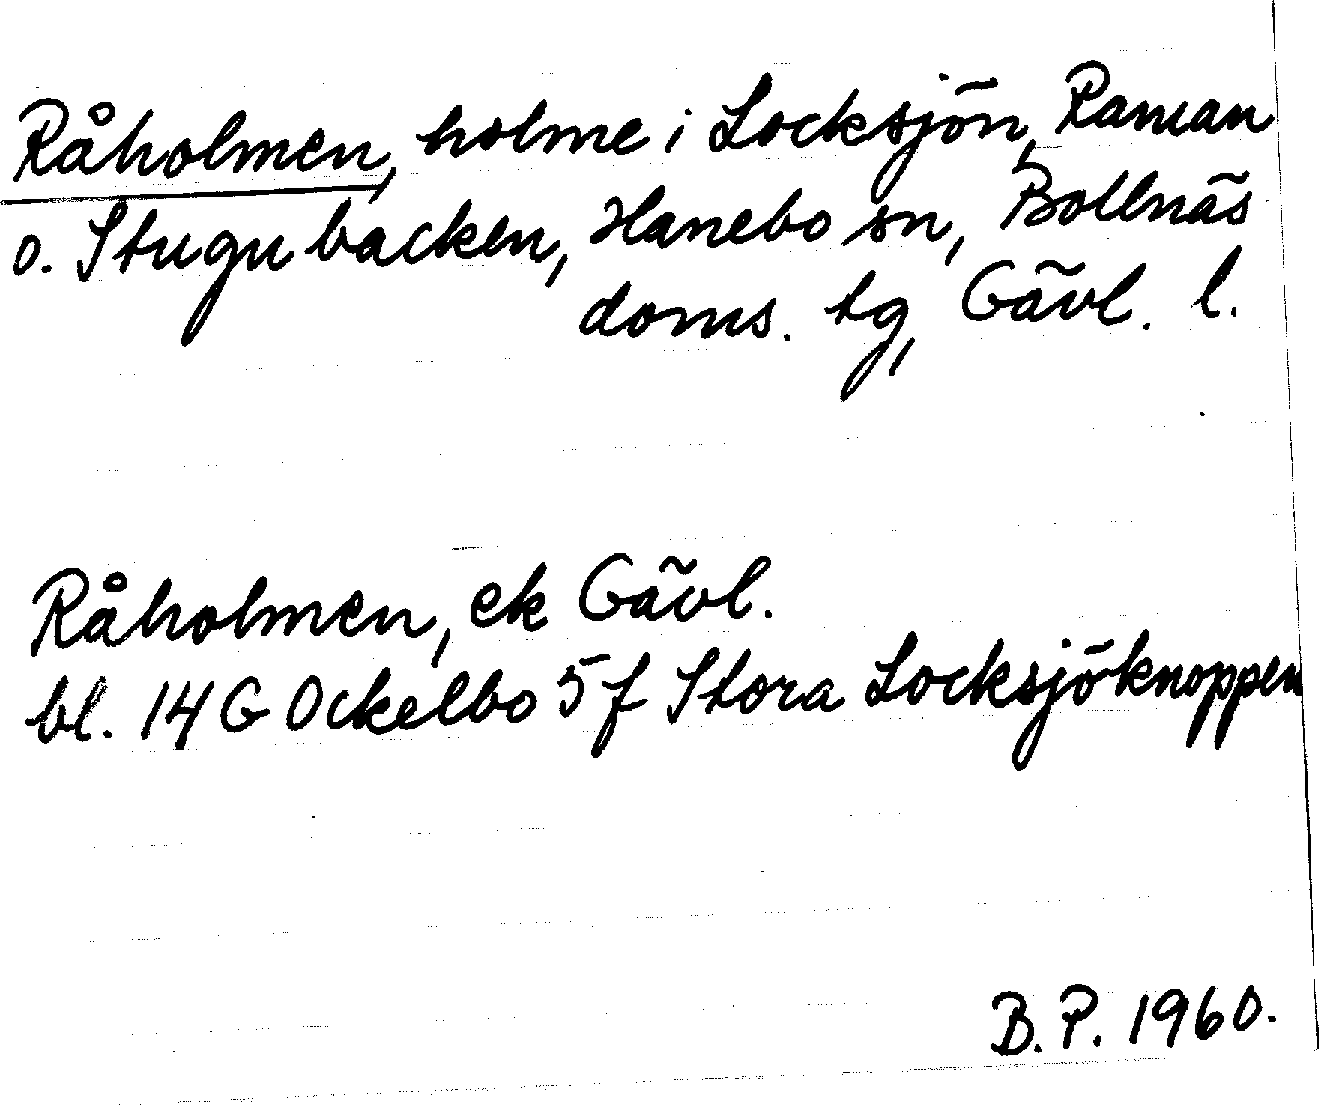 Råholmen, holme i Locksjön, Raman
o. Stugubacken, Hanebo sn, Bollnäs
doms. tg, Gävl. l.
Råholmen, ek Gävl.
bl. 14 G Ockelbo 5 f Stora Locksjöknoppen
B. P. 1960.